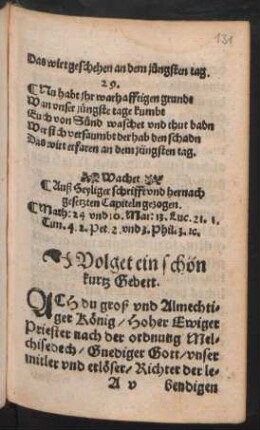 131
Das wirt geschehen an dem jüngsten tag.
29.
Nu habt jhr warhafftigen grundt
Wan vnser jüngste tage kumbt
Euch von Sünd waschet vnd thut badn
Wer sich versaumbt der hab den schadn
Das wirt erfaren an dem jüngsten tag.
Wachet
Auß Heyliger schrifft vnd hernach
gesetzten Capiteln gezogen.
Math: 24 vnd 10. Mar: 13. Luc. 21. 1.
Tim. 4. 2. Pet. 2 vnd 3. Phil. 3. ıc.
Volget ein schön
kurtz Gebett.
ACH du groß vnd Almechti-
ger König / Hoher Ewiger
Priester nach der ordnung Mel-
chisedech / Gnediger Gott / vnser
mitler vnd erlöser / Richter der le-
A v bendigen